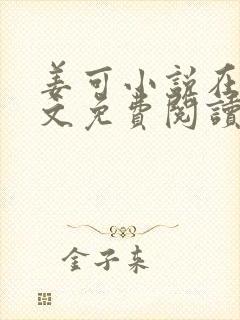 姜可小说在
文免費閱讀
金子来